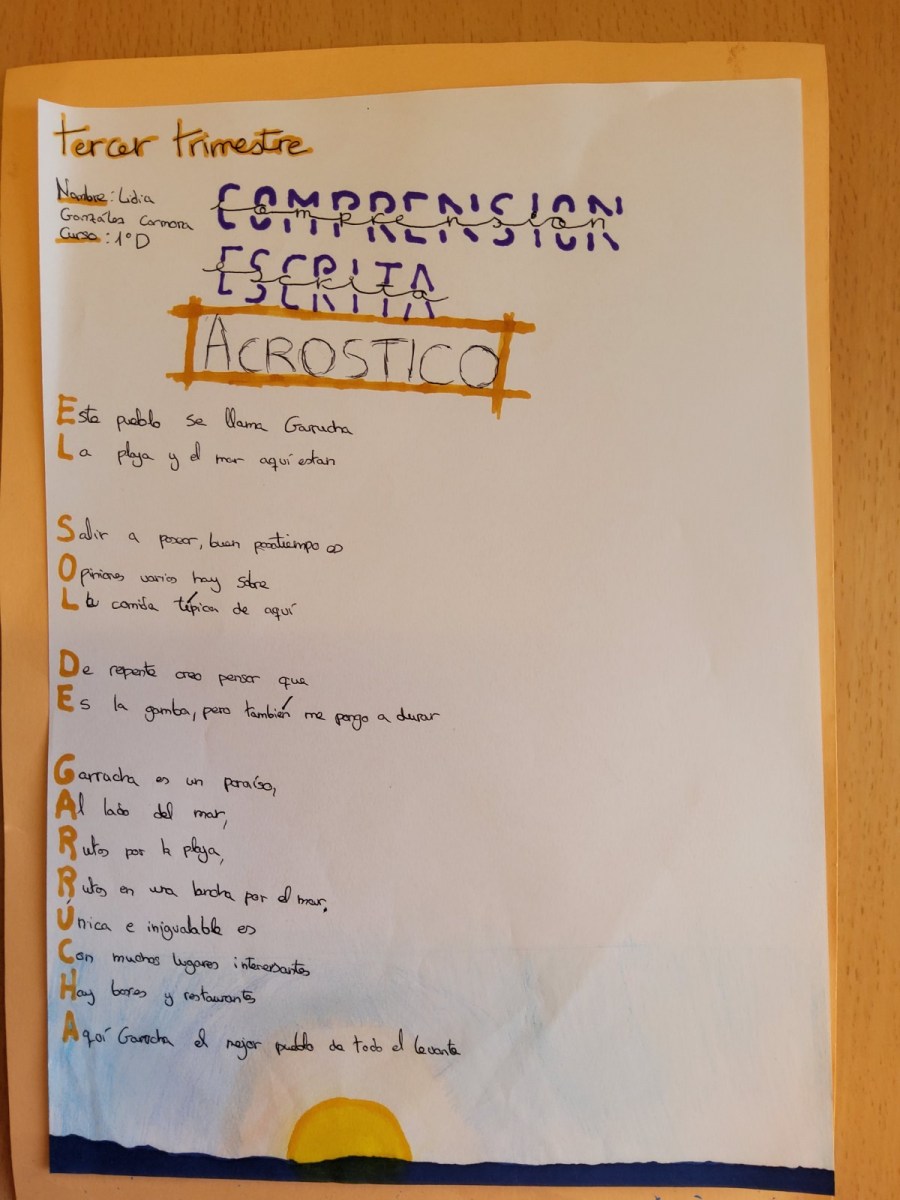 tercer trimestre
Nombre: Lidia
González Carmona
Curso: 1º D
COMPRENSION
comprension
ESCRITA
escrita
ACROSTICO
Este pueblo se llama Garrucha
La playa y el mar aquí estan
Salir a pasear, buen pasatiempo es
Opiniones varios hay sobre
La comida típica de aquí
De repente creo pensar que
Es la gamba, pero también me pongo a dudar
Garrucha es un paraíso,
Al lado del mar,
Rutas por la playa,
Rutas en una lancha por el mar,
Única e inigualable es
Con muchos lugares interesantes
Hay bares y restaurantes
Aquí Garrucha el mejor pueblo de todo el levante